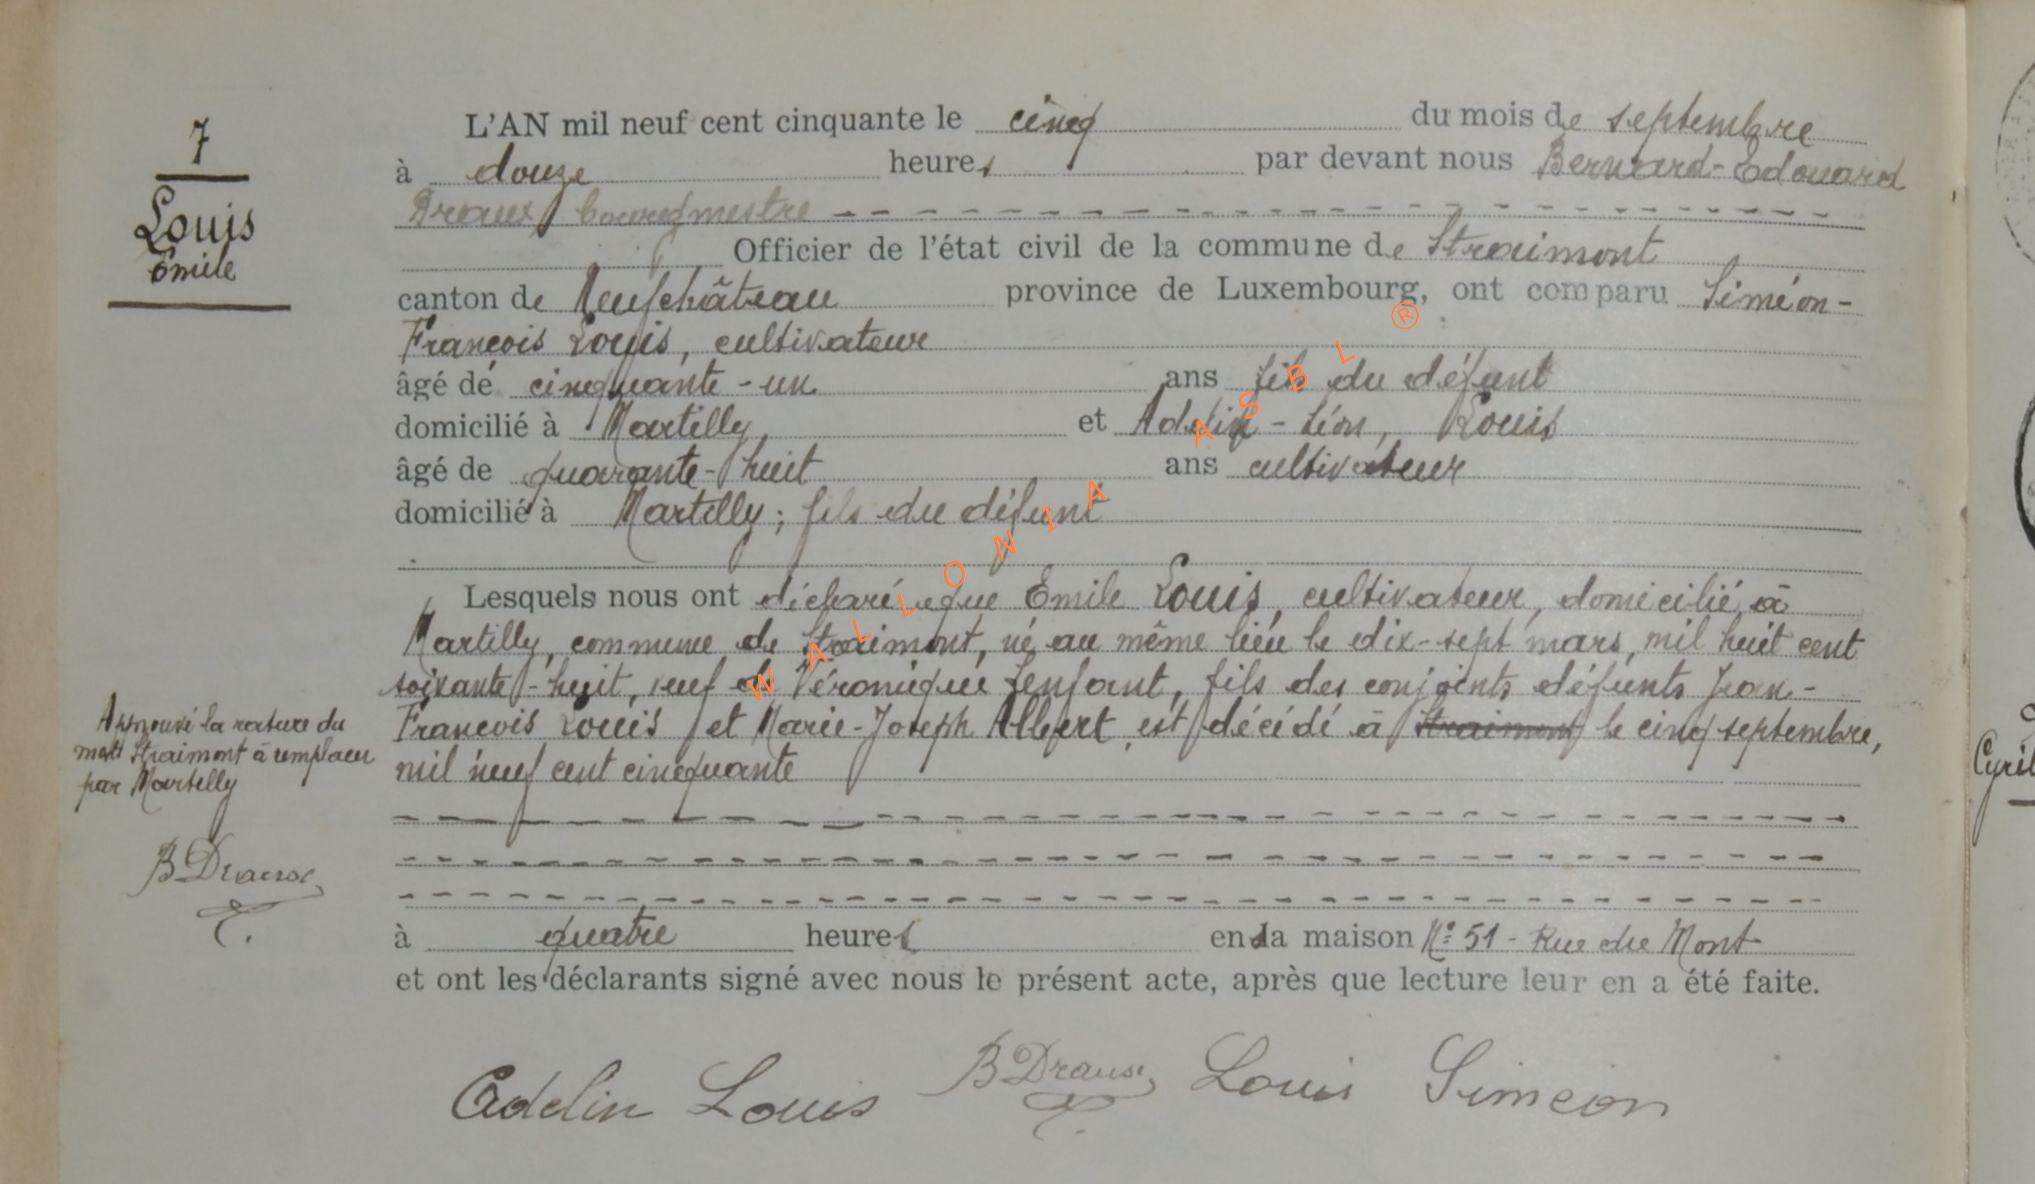 7
Louis
Emile
L'AN mil neuf cent cinquante le cinq du mois de septembre
à douze heures par devant nous Bernard-Edouard
Draux, bourgmestre
Officier de l'état civil de la commune de Straimont
canton de Neufchâteau province de Luxembourg, ont comparu Siméon-
François Louis, cultivateur
âgé de cinquante-un ans fils du défunt
domicilié à Martilly, et Adelin-Léon, Louis
âgé de quarante-huit ans cultivateur
domicilié à Martilly; fils du défunt
Lesquels nous ont déclaré que Emile Louis, cultivateur, domicilié à
Martilly, commune de Straimont, né au même lieu le dix-sept mars, mil huit cent
soixante-huit, veuf de Véronique Lenfant, fils des conjoints défunts Jean-
François Louis et Marie-Joseph Albert, est décédé à Straimont le cinq septembre,
mil neuf cent cinquante
Approuvé la rature du
mot Straimont à remplacer
par Martilly
B Draux
à quatre heures en la maison N° 51 - Rue du Mont
et ont les déclarants signé avec nous le présent acte, après que lecture leur en a été faite.
Adelin Louis B Draux Louis Siméon
WALLONIA ASBL ®
Cyril